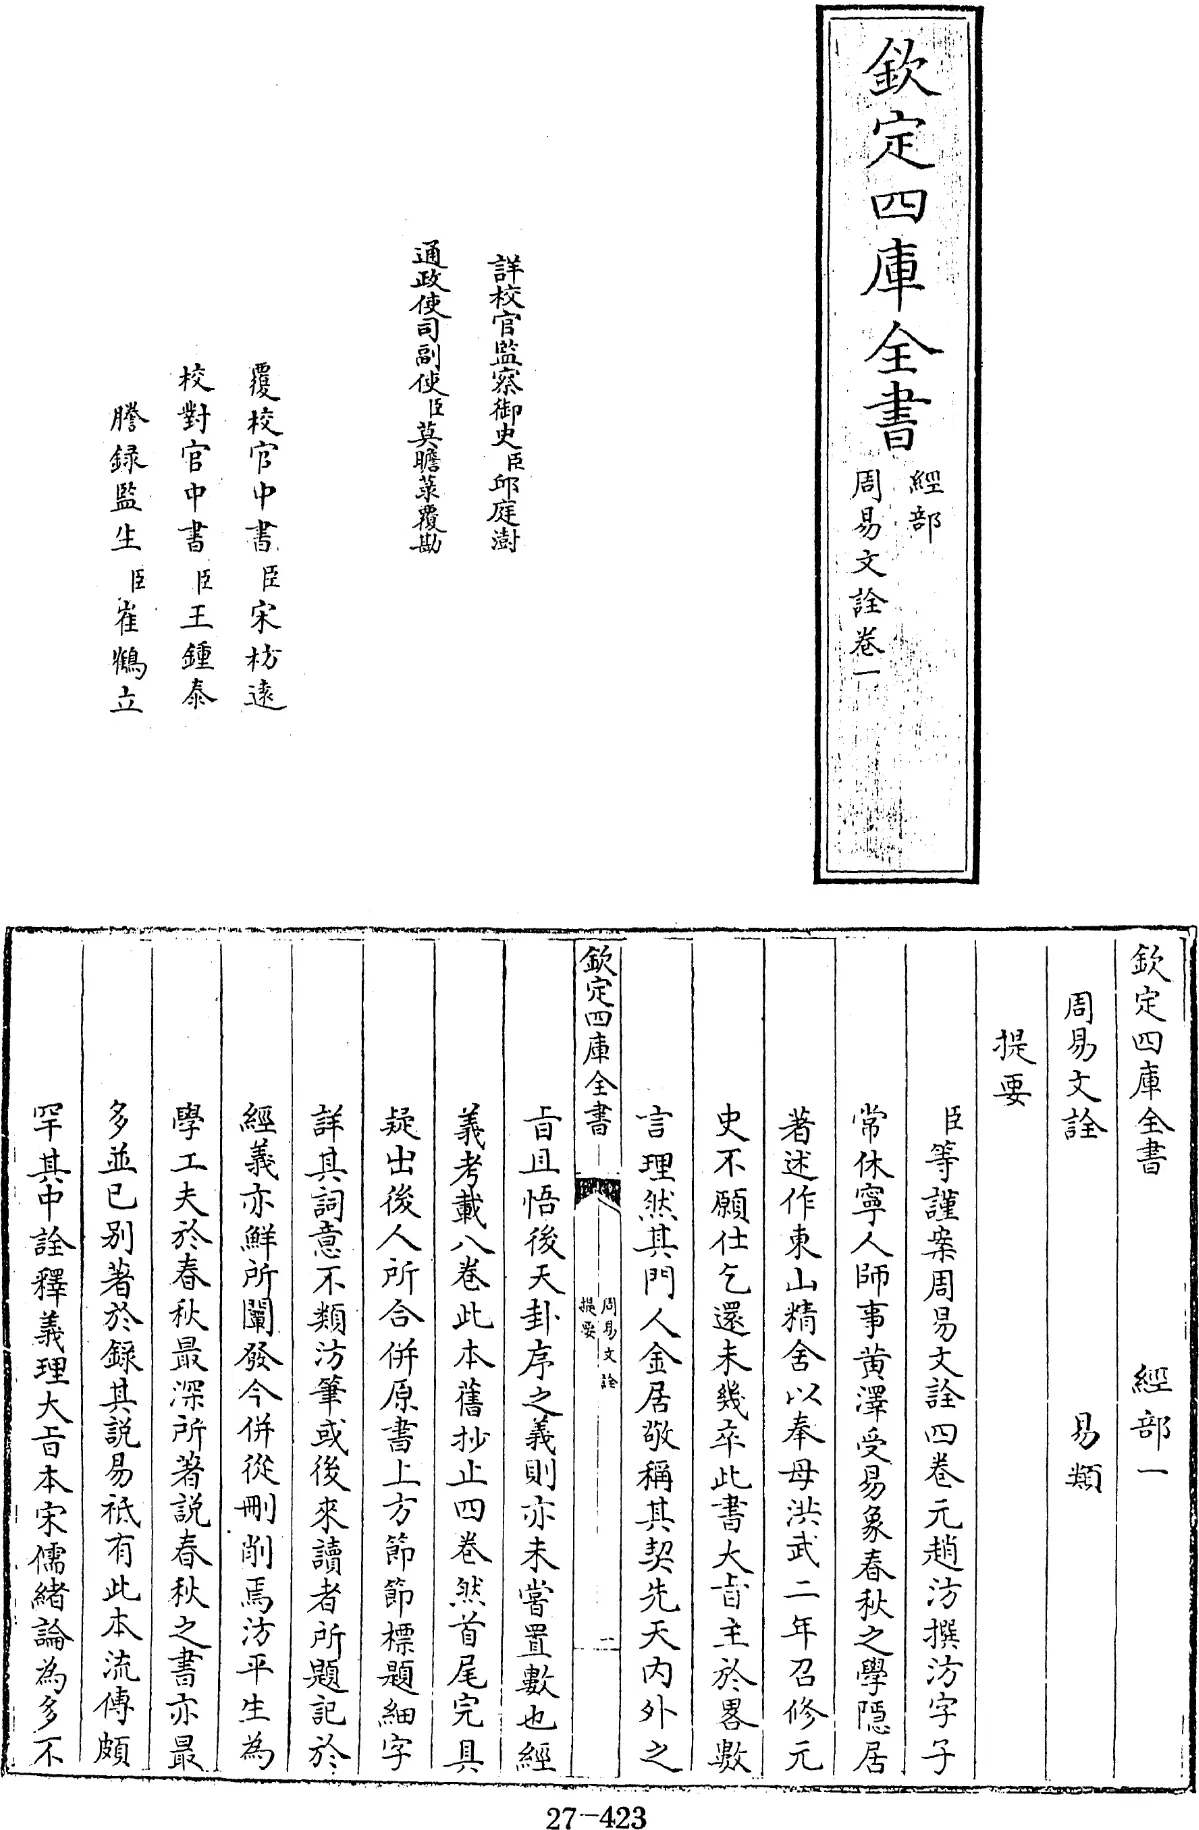 欽定四庫全書
經部
周易文詮卷一
詳校官監察御史臣邱庭澍
通政使司副使臣莫瞻菉覆勘
覆校官中書臣宋枋遠
校對官中書臣王鍾泰
謄録監生臣崔鶴立
欽定四庫全書 經部一
周易文詮 易類
提要
臣等謹案周易文詮四卷元趙汸撰汸字子
常休寧人師事黄澤受易象春秋之學隱居
著述作東山精舍以奉母洪武二年召修元
史不願仕乞還未幾卒此書大㫖主於畧數
言理然其門人金居敬稱其契先天内外之
欽定四庫全書
周易文詮
提要
一
㫖且悟後天卦序之義則亦未嘗置數也經
義考載八卷此本舊抄止四卷然首尾完具
疑出後人所合併原書上方節節標題細字
詳其詞意不類汸筆或後來讀者所題記於
經義亦鮮所闡發今併從刪削焉汸平生為
學工夫於春秋最深所著說春秋之書亦最
多並已别著於録其說易祇有此本流傳頗
罕其中詮釋義理大㫖本宋儒緒論為多不
27-423